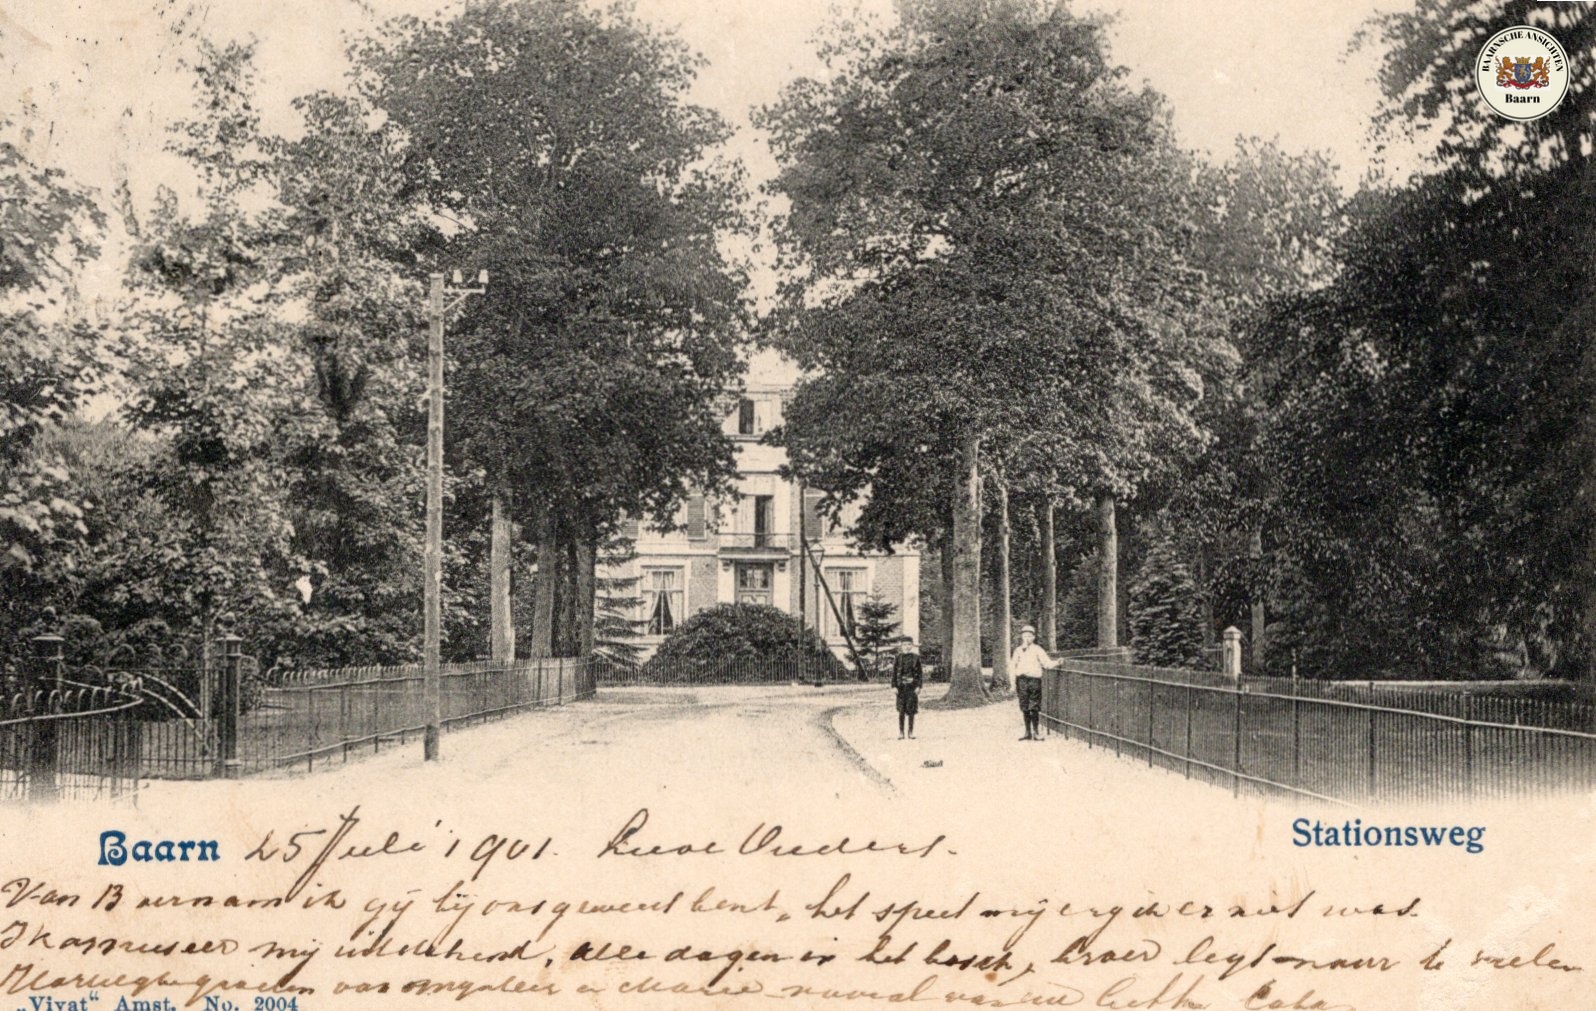 BAARNSCHE ANSICHTEN
Baarn
Baarn 25 Juli 1901. Lieve Ouders.
Stationsweg
Van B vernam ik gij bij ons geweest bent, het speet mij erg ik er niet was.
Ik amuseer mij uitstekend, alle dagen in het bosch, broer legt maar te
Hartelijke groeten van en Marie vooral van
„Vivat“ Amst. No. 2004